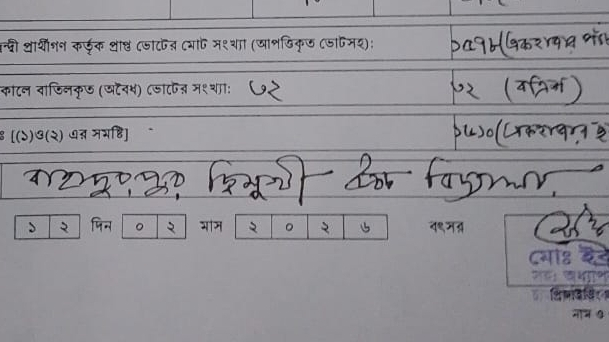 ন্দ্বী প্রার্থীগন কর্তৃক প্রাপ্ত ভোটের মোট সংখ্যা (আপত্তিকৃত ভোটসহ): ১৫৭৮ (একহাজার
কালে বাতিলকৃত (অবৈধ) ভোটের সংখ্যা: ৩২ ৩২ (বত্রিশ)
[(১)ও(২) এর সমষ্টি] ১৬১০ (একহাজার
বাহাদুরপুর ত্রিমুখী উচ্চ বিদ্যালয়
১ ২ দিন ০ ২ মাস ২ ০ ২ ৬ বৎসর
মোঃ
প্রিজাইডিং
নাম ও